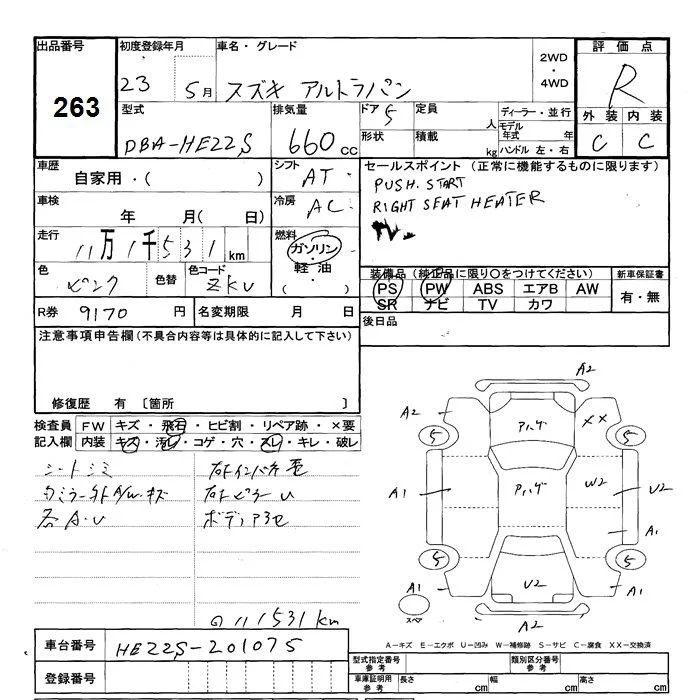 出品番号
263
初度登録年月
23 5月
車名・グレード
スズキ アルトラパン
2WD
・
4WD
評価点
R
外装 内装
C C
型式
DBA-HE22S
排気量
660 cc
ドア 5
形状
定員 人
積載 kg
ディーラー・並行
モデル年式 年
ハンドル 左・右
車歴
自家用・( )
シフト
AT
車検
年 月( 日)
冷房
AC
走行
11万1千531 km
燃料
ガソリン
・
軽油
・
( )
色
ピンク
色替
色コード
ZKU
R券 9170 円
名変期限 月 日
セールスポイント (正常に機能するものに限ります)
PUSH. START
RIGHT SEAT HEATER
TV
装備品 (純正品に限り○をつけてください)
PS PW ABS エアB AW
SR ナビ TV カワ
新車保証書
有・無
後日品
注意事項申告欄(不具合内容等は具体的に記入して下さい)
修復歴 有 〔箇所 〕
検査員記入欄
FW キズ・飛石・ヒビ割・リペア跡・×要
内装 キズ・汚レ・コゲ・穴・スレ・キレ・破レ
シートシミ
各A・U
右ピラーU
111531 km
A2
A2
XX
5
5
A1
W2
U2
A1
5
5
A1
U2
A1
A2
スペア
A−キズ E−エクボ U−凹み W−補修跡 S−サビ C−腐食 XX−交換済
車台番号 HE22S-201075
登録番号
型式指定番号 参考
類別区分番号 参考
車庫証明用 参考
長さ cm
幅 cm
高さ cm